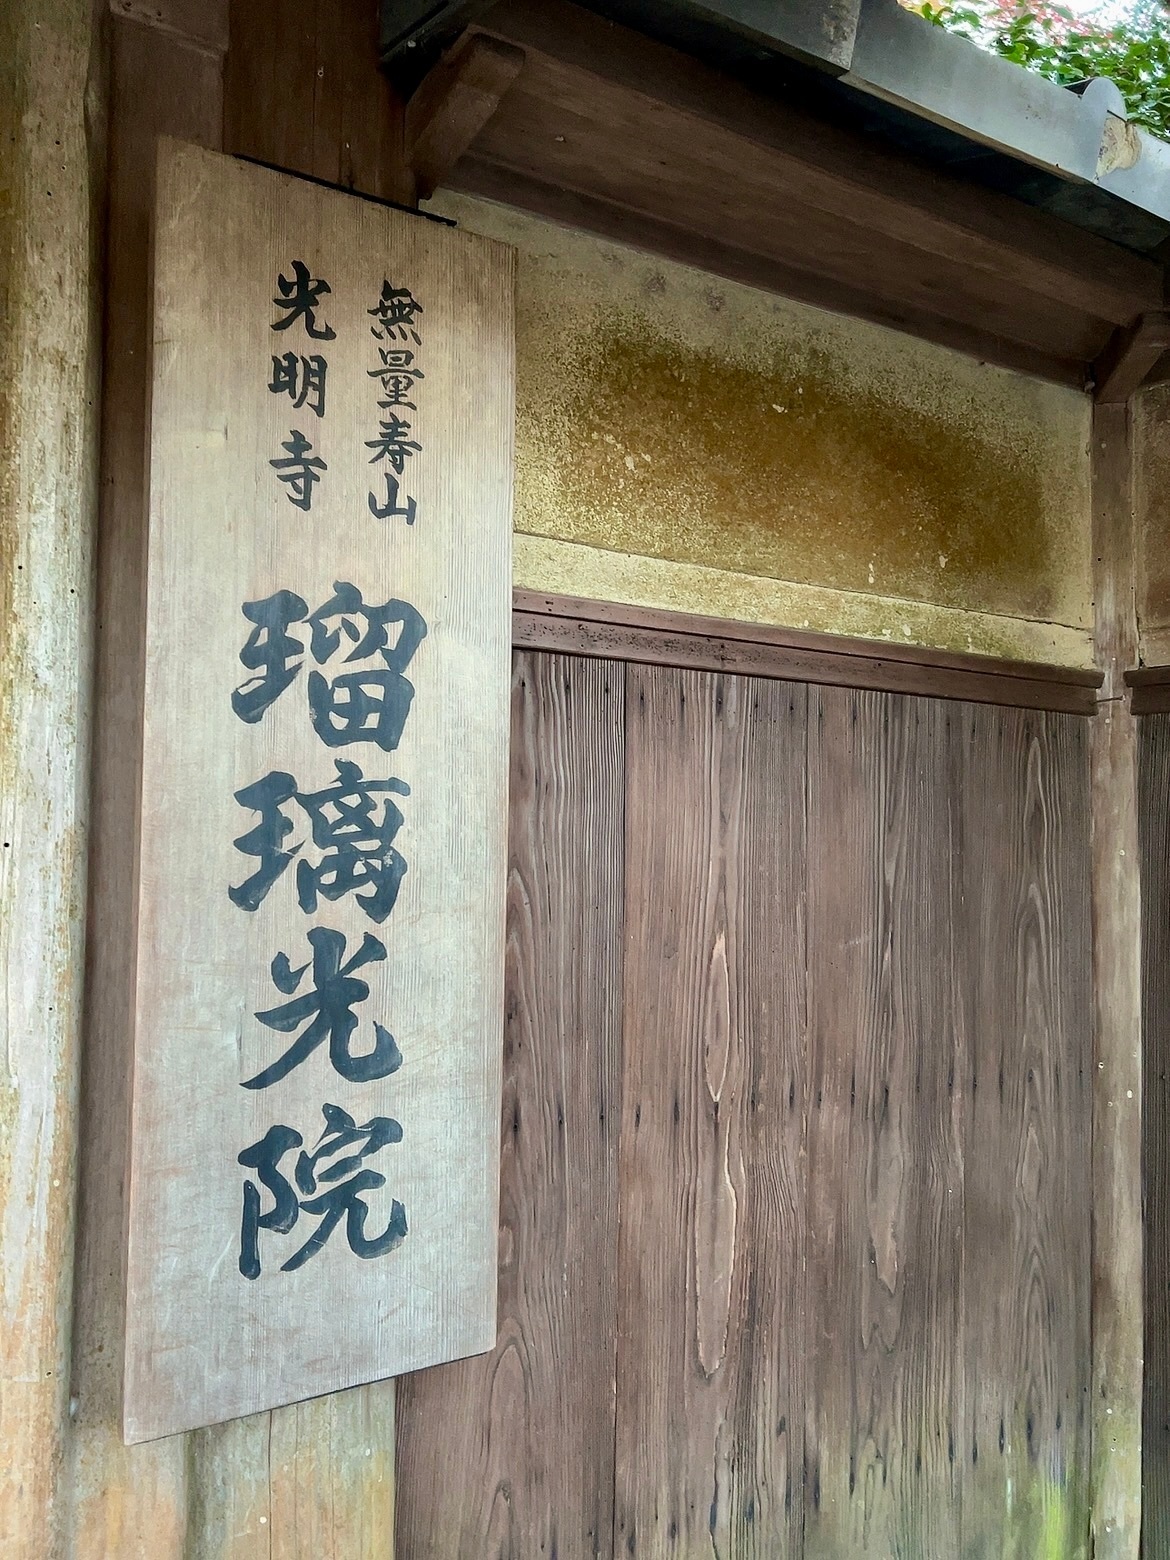 無量壽山
光明寺
瑠璃光院